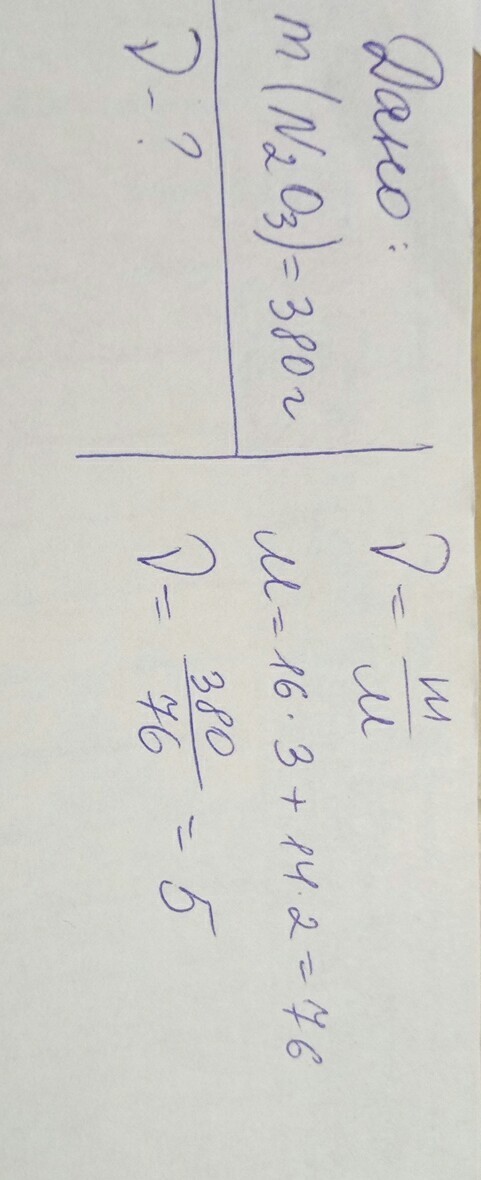 Дано:
m(N₂O₃)=380г
ν-?
ν = m/M
M=16·3+14·2=76
ν = 380/76 = 5